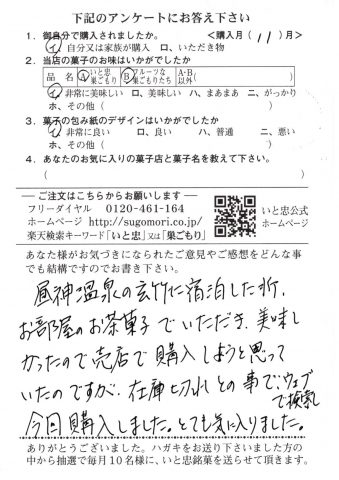 下記のアンケートにお答え下さい
1. 御自分で購入されましたか。 <購入月( 11 )月>
イ. 自分又は家族が購入 ロ. いただき物
2. 当店の菓子のお味はいかがでしたか
品名 A いと忠巣ごもり B フルーツな巣ごもりたち A·B以外( )
イ. 非常に美味しい ロ、美味しい ハ、まあまあ ニ、がっかり
ホ、その他( )
3. 菓子の包み紙のデザインはいかがでしたか
イ. 非常に良い ロ、良い ハ、普通 ニ、悪い
ホ、その他( )
4. あなたのお気に入りの菓子店と菓子名を教えて下さい。
( )
ご注文はこちらからお願いします
フリーダイヤル 0120-461-164
ホームページ http://sugomori.co.jp/
楽天検索キーワード「いと忠」又は「巣ごもり」
いと忠公式
ホームページ
あなた様がお気づきになられたご意見やご感想をどんな事
でも結構ですのでお書き下さい。
昼神温泉の玄竹に宿泊した所、
お部屋のお茶菓子でいただき、美味し
かったので売店で購入しようと思って
いたのですが、在庫切れとの事で、ウェブ
で検索し
今回購入しました。とても気に入りました。
ありがとうございました。ハガキをお送り下さいました方の
中から抽選で毎月10名様に、いと忠銘菓を送らせて頂きます。